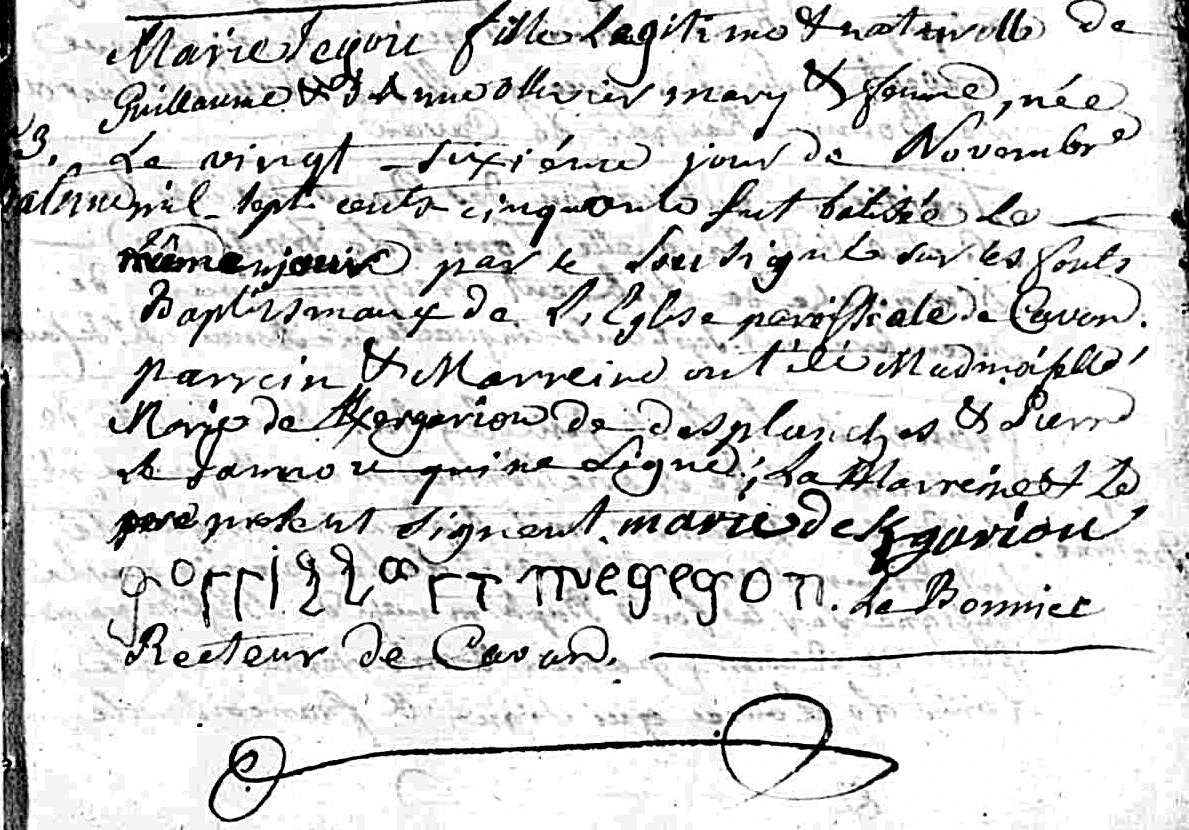 Marie legou fille Legitime & naturelle de
Guillaume & d'Anne ollivier mary & femme, née
Le vingt-sixiéme jour de Novembre
mil-sept cents cinquante fut batisée Le
même jour par le sousigné sur les fonts
Baptismaux de L'Eglise paroissiale de Cavan.
parrein & Marreine ont été Madmoiselle
Marie de Kergariou de desplanches & Pierre
le qui ne signe; La Marreine & le
pere present signent. marie de Kgariou
Le Bonniec
Recteur de Cavan.